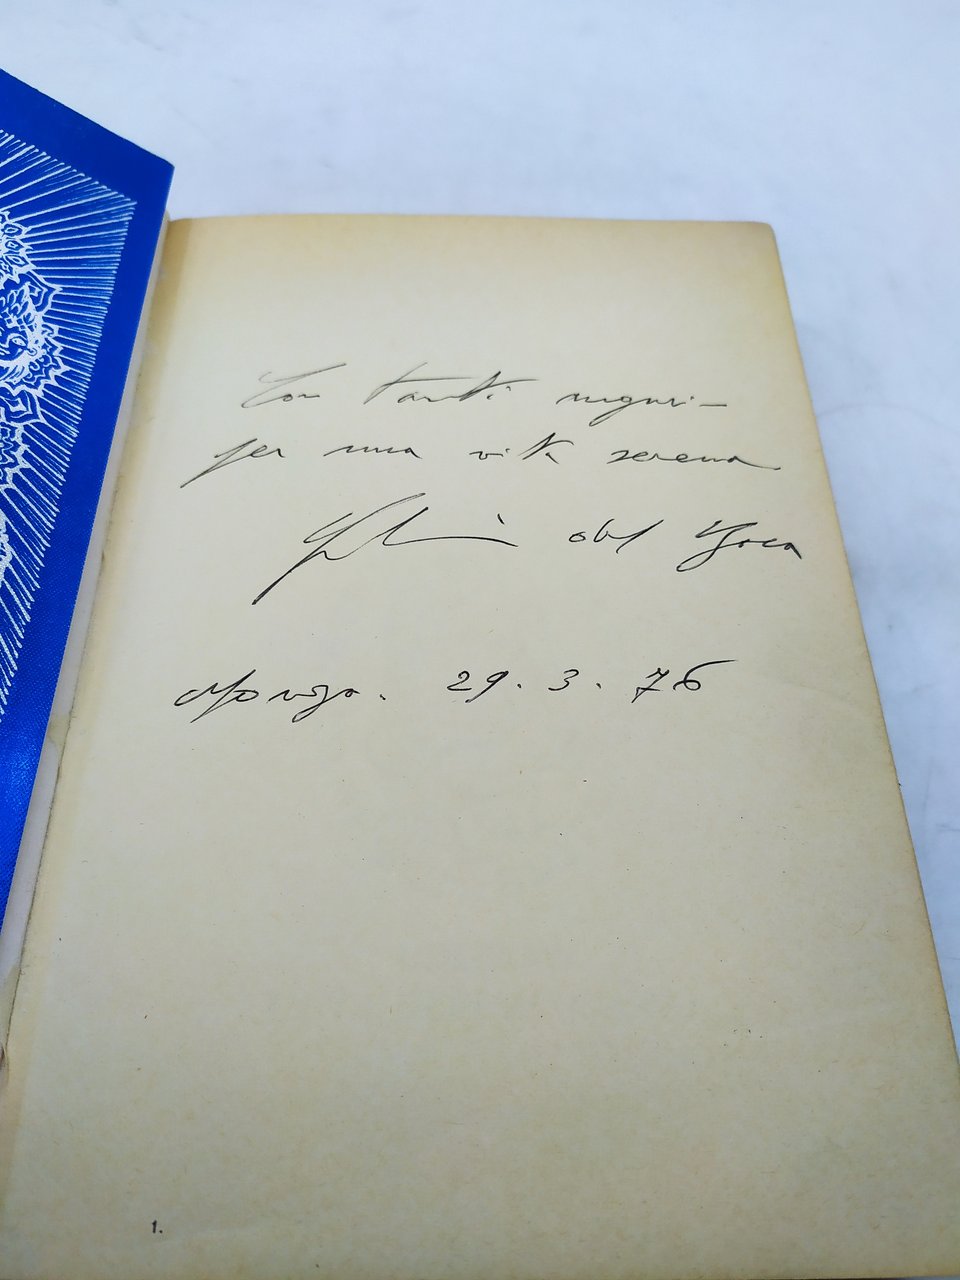 Con tanti auguri -
per una vita serena
del
Monza. 29. 3. 76
1.